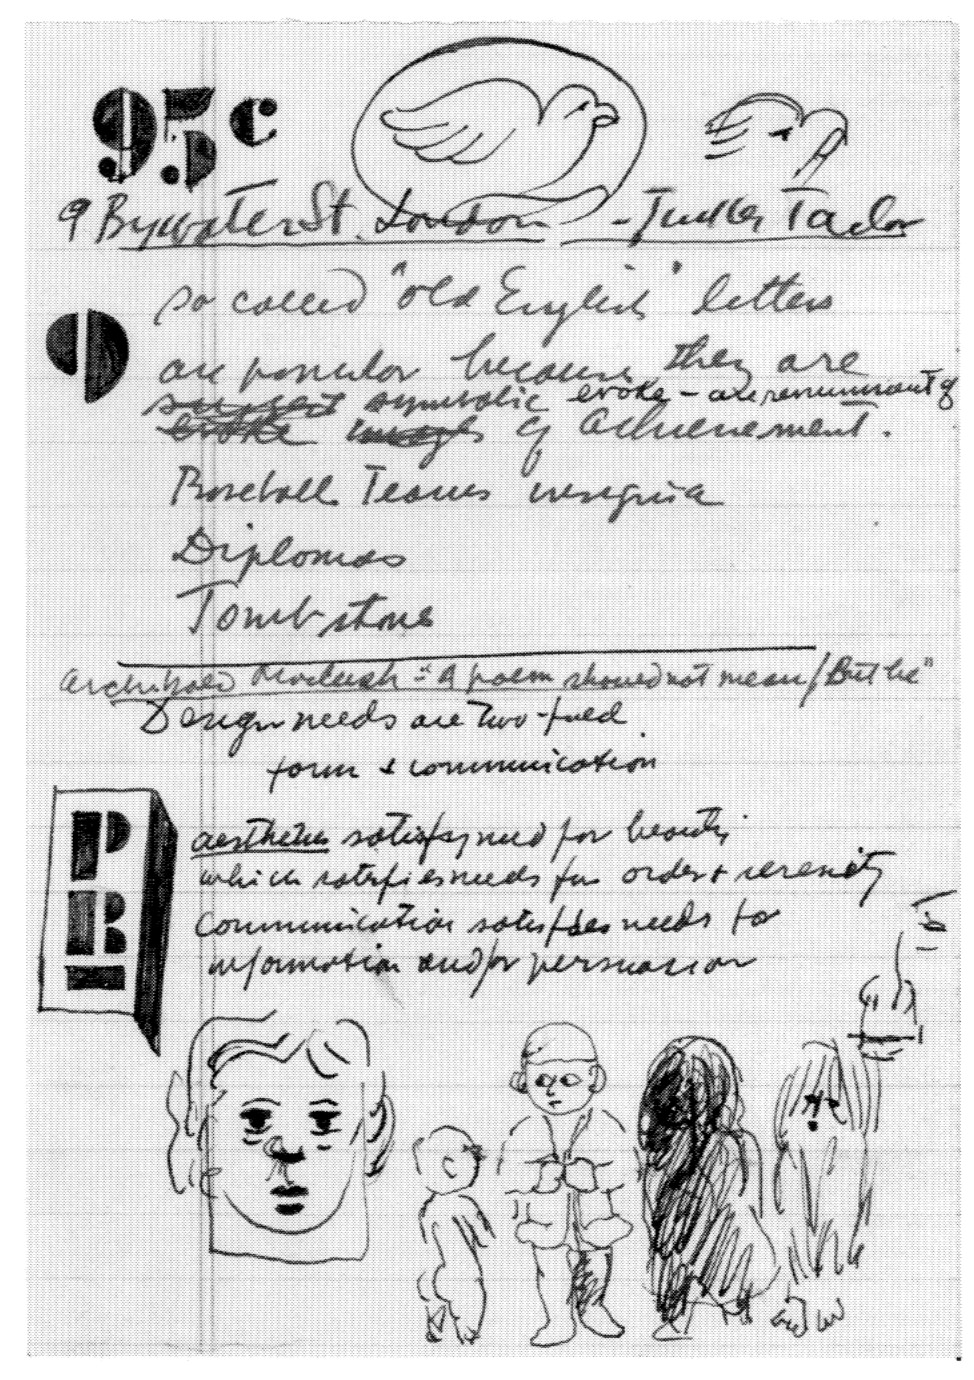 95c
9 Bywater St. London - Tucker Taylor
so called "old English" letters
are popular because they are
suggest symbolic evoke - are reminiscent of
evoke images of achievement.
Baseball Teams insignia
Diplomas
Tombstone
Archibald MacLeish - "A poem should not mean / But be"
Design needs are two-fold
form & communication
aesthetics satisfy need for beauty
which satisfies needs for order & serenity
communication satisfies needs for
information and/or persuasion
P
B
I